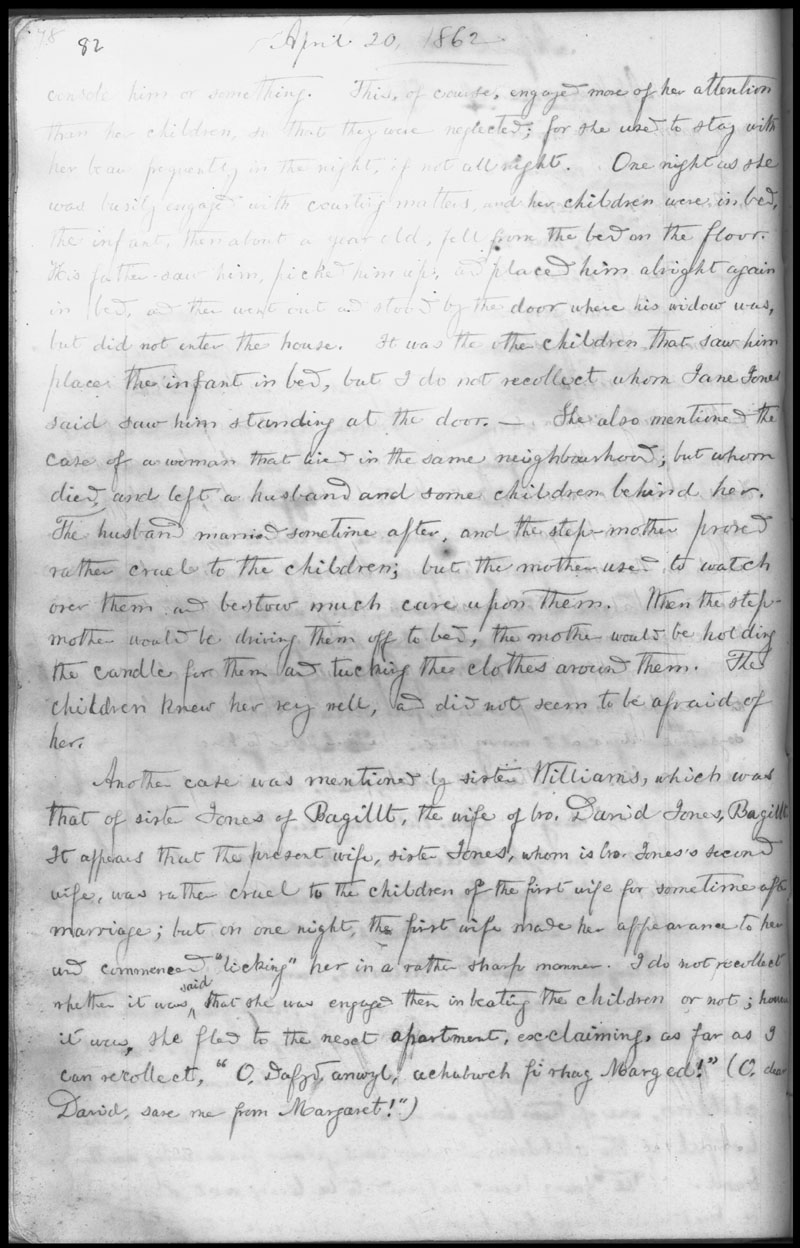 78
82
April 20, 1862
console him or something. This, of course, engaged more of her attention
than her children, so that they were neglected; for she used to stay with
her beau frequently in the night, if not all night. One night as she
was busily engaged with courting matters, and her children were in bed,
the infant, then about a year old, fell from the bed on the floor.
His father saw him, picked him up, and placed him alright again
in bed, and then went out and stood by the door where his widow was,
but did not enter the house. It was the other children that saw him
place the infant in bed, but I do not recollect whom Jane Jones
said saw him standing at the door. — She also mentioned the
case of a woman that lived in the same neighbourhood; but whom
died, and left a husband and some children behind her.
The husband married sometime after, and the step-mother proved
rather cruel to the children; but the mother used to watch
over them and bestow much care upon them. When the step-
mother would be driving them off to bed, the mother would be holding
the candle for them and tucking the clothes around them. The
children knew her very well, and did not seem to be afraid of
her.
Another case was mentioned by sister Williams, which was
that of sister Jones of Bagillt, the wife of bro. David Jones, Bagillt
It appears that the present wife, sister Jones, whom is bro. Jones's second
wife, was rather cruel to the children of the first wife for sometime after
marriage; but on one night, the first wife made her appearance to her
and commenced "licking" her in a rather sharp manner. I do not recollect
whether it was said that she was engaged then in beating the children or not;
it was, she fled to the next apartment, exclaiming, as far as I
can recollect, "O, Dafydd anwyl, achubwch fi rhag Marged!" (O, dear
David, save me from Margaret!")